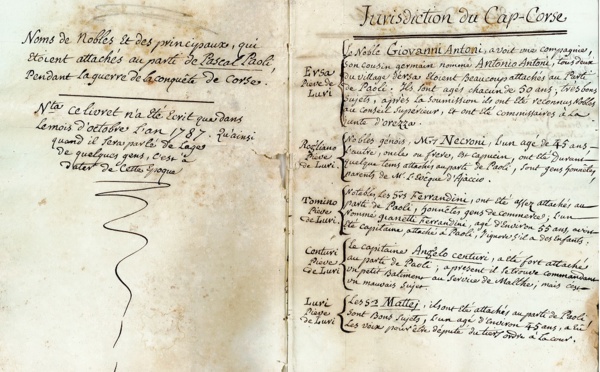 Noms de Nobles Et des principaux, qui
Etoient attachés au parti de Pascal Paoli,
Pendant la guerre de la conquète de Corse.
Nta Ce livret n'a Eté Ecrit que dans
Le mois d'octobre L'an 1787. Qu'ainsi
quand il Sera parlé de L'age
de quelques gens, C'est à
dater de Cette Epoque
Jurisdiction du Cap-Corse
Ersa
Pieve de
Luri
Le Noble Giovanni Antoni, avoit une compagnie,
son cousin germain nommé Antonio Antoni, tous deux
du village d'ersa étoient beaucoup attachés au Parti
de Paoli: Ils sont agés chacun de 50 ans, très bons
Sujets, après la soumission ils ont été reconnus Nobles
au conseil Supérieur, et ont été commissaires à la
junte d'orezza.
Rogliano
Pieve
de Luri
Nobles génois, Mrs Negroni, L'un agé de 45 ans
L'autre, oncle ou frère, Ex-capucin, ont été durant
quelque tems attachés au parti de Paoli, Sont gens honnêtes,
parents de Mr L'Evêque d'Ajaccio.
Tomino
Pieve
de Luri
Notables les Srs Ferrandini, ont été assez attachés au
parti de Paoli, honnêtes gens de commerce; L'un
Nommé gianetti Ferrandini, agé d'Environ 55 ans, avoit
été capitaine attaché à Paoli, J'ignore s'il a des Enfants.
Centuri
Pieve
de Luri
Le capitaine Angelo Centuri, a été fort attaché
au parti de Paoli, a present il se trouve commandant
un petit Batiment au Service de Malthe; mais c'est
un mauvais Sujet.
Luri
Pieve
de Luri
Les Srs Mattej, ils ont été attachés au parti de Paoli
Sont Bons Sujets, L'un agé d'Environ 45 ans, a eu
Les voix pour être député du tiers ordre à la cour.